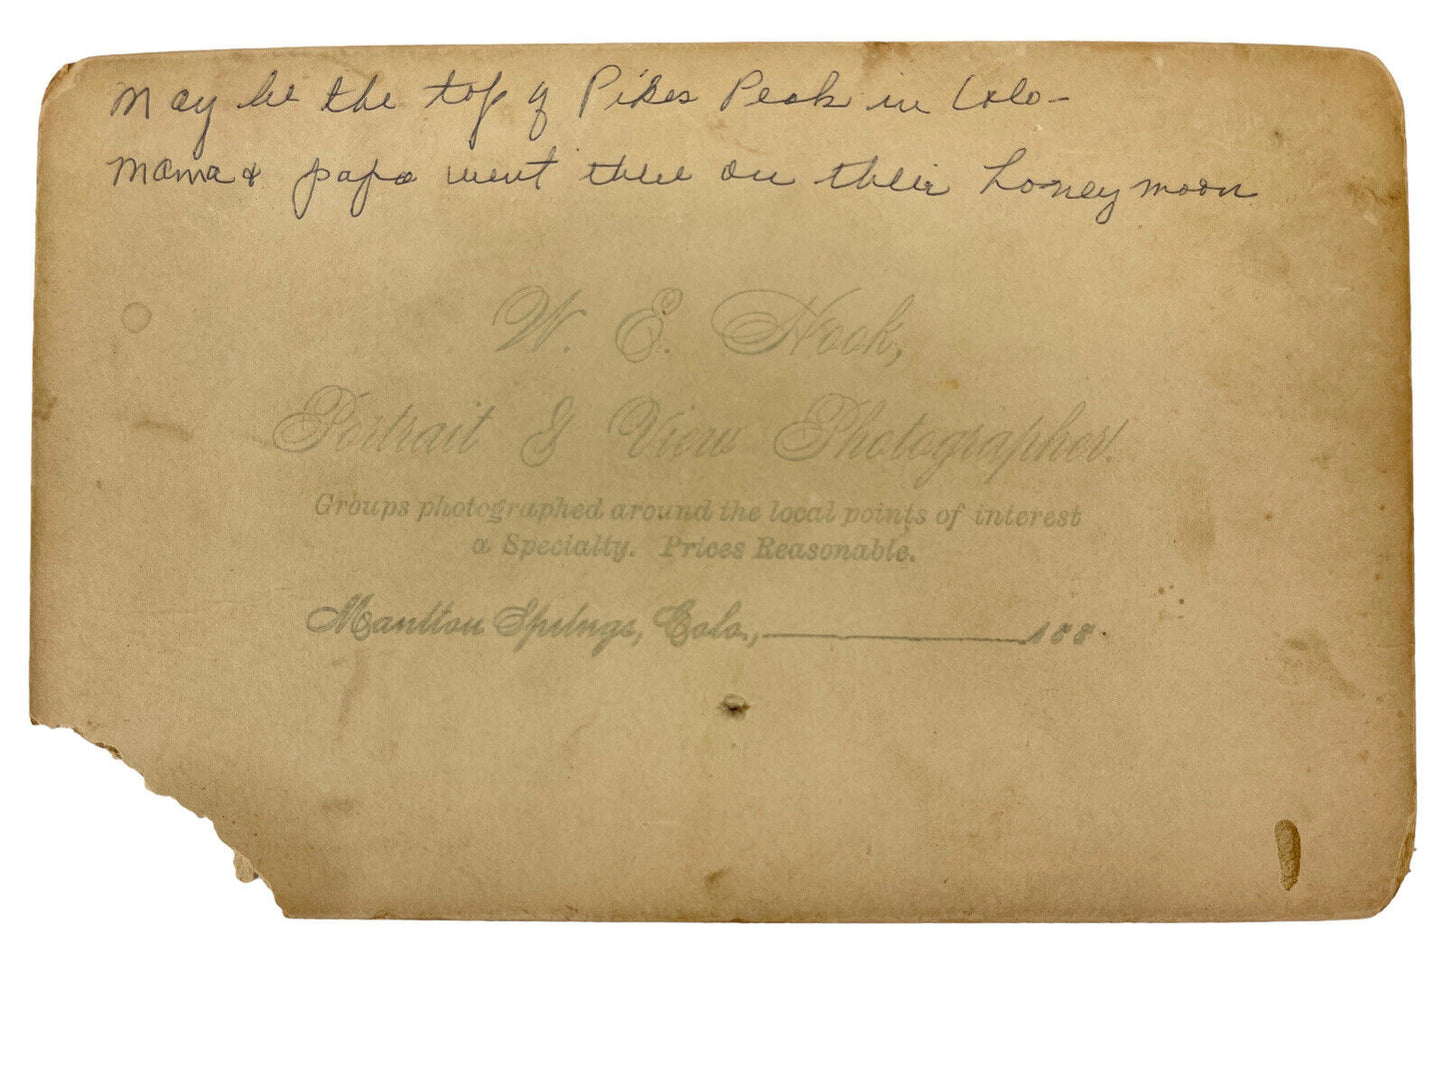 May be the top of Pikes Peak in Colo-
Mama & papa went there on their honeymoon
W. E. Hook,
Portrait & View Photographer.
Groups photographed around the local points of interest
a Specialty. Prices Reasonable.
Manitou Springs, Colo., 188